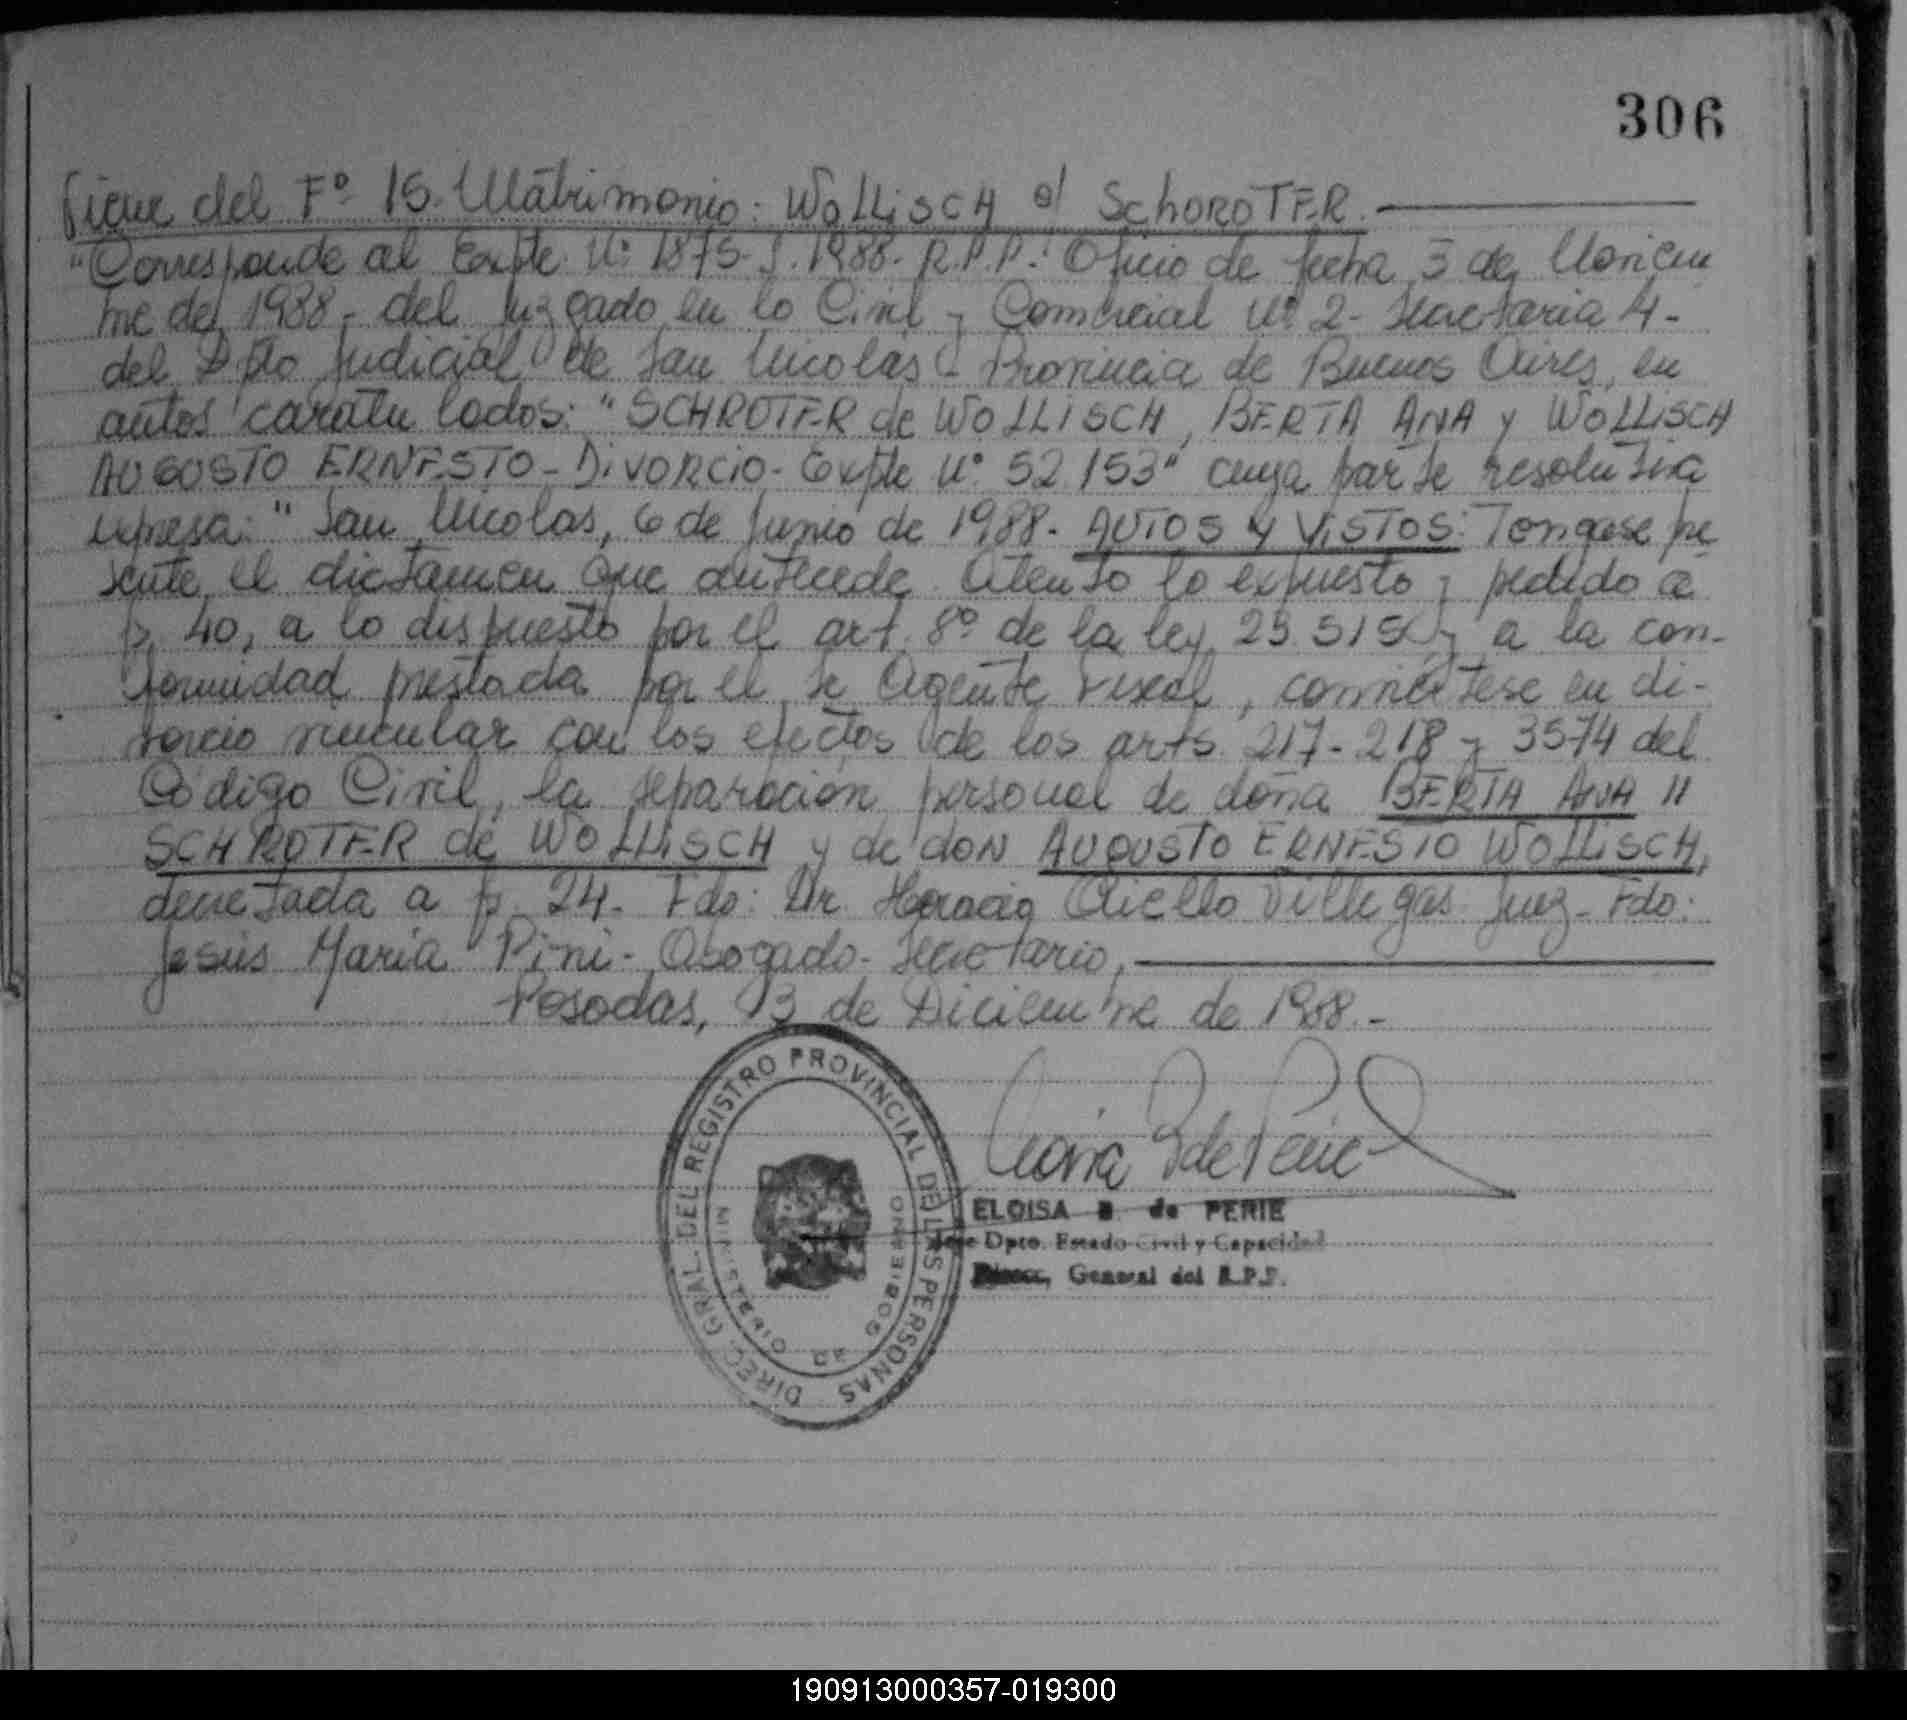 306
Viene del Fº 15. Matrimonio: WOLLISCH c/ SCHOROTER.
"Corresponde al Expte. Nº 1875-J. 1988. R.P.P.: Oficio de fecha 3 de Noviem
bre de 1988. del Juzgado en lo Civil y Comercial Nº 2- Secretaria 4-
del Dpto Judicial de San Nicolás - Provincia de Buenos Aires, en
autos caratulados: "SCHROTER de WOLLISCH, BERTA ANA y WOLLISCH
AUGUSTO ERNESTO - DIVORCIO - Expte Nº 52.153" cuya parte resolutiva
expresa: "San Nicolas, 6 de Junio de 1988. AUTOS Y VISTOS: Tengase pre
sente el dictamen que antecede. Atento lo expuesto y pedido a
fs. 40, a lo dispuesto por el art. 8º de la ley 23.515 y a la con-
formidad prestada por el Sr Agente Fiscal, conviertese en di-
vorcio vincular con los efectos de los arts. 217-218 y 3574 del
Código Civil, la separación personal de doña BERTA ANA //
SCHROTER de WOLLISCH y de don AUGUSTO ERNESTO WOLLISCH,
decretada a fs. 24. Fdo: Dr. Horacio Aiello Villegas Juez- Fdo:
Jesús María Pini- Abogado- Secretario,
Posadas, 13 de Diciembre de 1988.-
DIREC. GRAL. DEL REGISTRO PROVINCIAL DE LAS PERSONAS
MINISTERIO DE GOBIERNO
ELOISA B. de PERIE
Jefe Dpto. Estado Civil y Capacidad
Direcc. General del R.P.P.
190913000357-019300